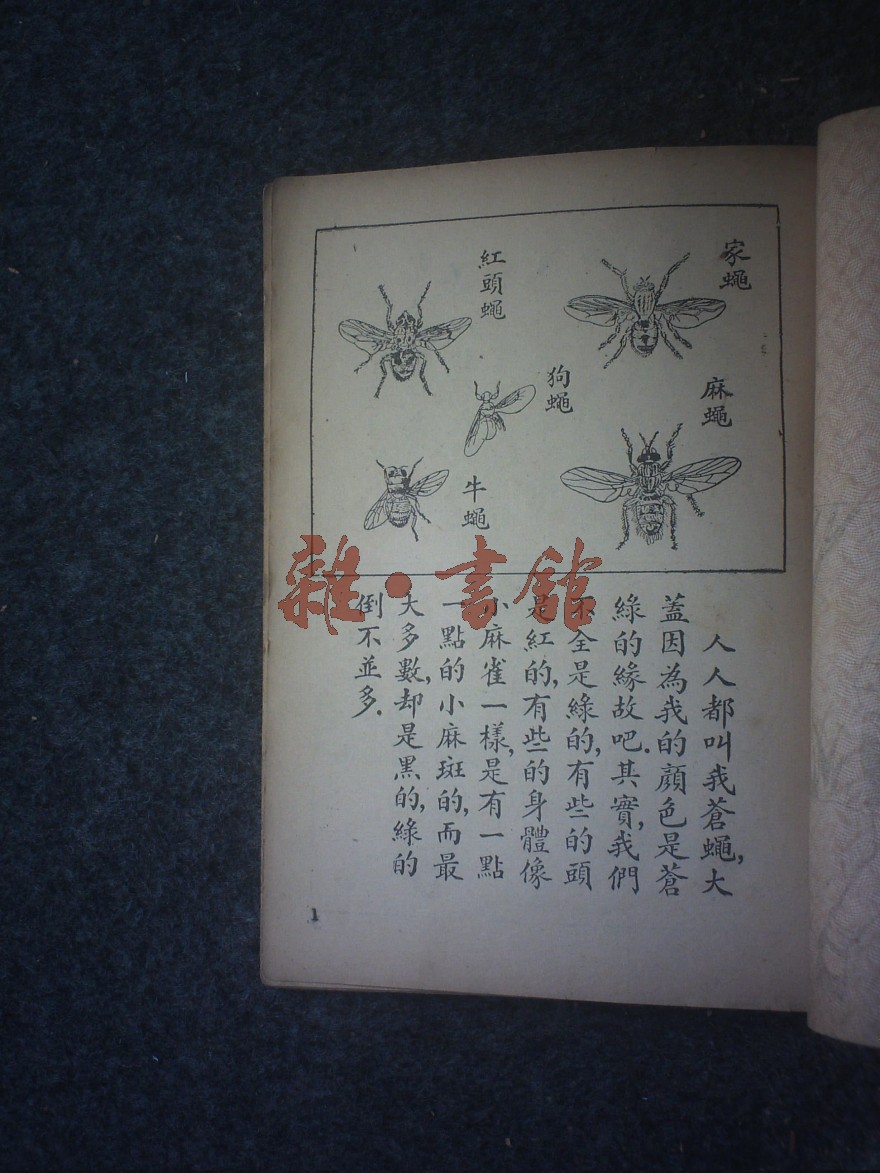 家蠅
紅頭蠅
狗蠅
麻蠅
牛蠅
人人都叫我蒼蠅,大
蓋因為我的顏色是蒼
綠的緣故吧.其實,我們
不全是綠的,有些的頭
是紅的,有些的身體像
小麻雀一樣,是有一點
一點的小麻斑的,而最
大多數,却是黑的,綠的
倒不並多.
1
雜·書館